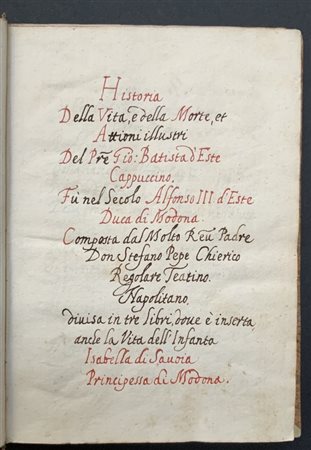 Historia
Della Vita, e della Morte, et
Attioni illustri
Del Prẽ Gio: Batista d'Este
Cappuccino.
Fù nel Secolo Alfonso III d'Este
Duca di Modona.
Composta dal Molto Reũ Padre
Don Stefano Pepe Chierico
Regolare Teatino.
Napolitano.
divisa in tre libri, doue è inserta,
ancke la Vita dell'Infanta
Isabella di Sauoia
Principessa di Modona.